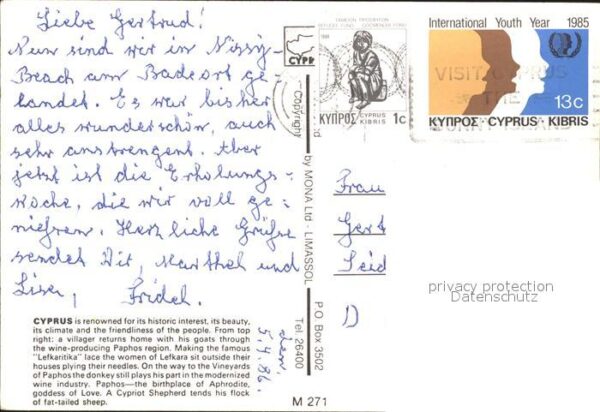 Liebe Gertrud!
Nun sind wir in Nissy-
Beach am Badeort ge-
landet. Es war bisher
alles wunderschön, auch
sehr anstrengend. Aber
jetzt ist die Erholungs-
woche, die wir voll ge-
nießen. Herzliche Grüße
sendet Dir, Marthel und
Lisa, Fridel.
CYPRUS is renowned for its historic interest, its beauty,
its climate and the friendliness of the people. From top
right: a villager returns home with his goats through
the wine-producing Paphos region. Making the famous
"Lefkaritika" lace the women of Lefkara sit outside their
houses plying their needles. On the way to the Vineyards
of Paphos the donkey still plays his part in the modernized
wine industry. Paphos—the birthplace of Aphrodite,
goddess of Love. A Cypriot Shepherd tends his flock
of fat-tailed sheep.
5.4.86.
Copyright
by MONA Ltd - LIMASSOL
P.O. Box 3502
Tel. 26400
M 271
CYPR
REFUGEE FUND
ΚΥΠΡΟΣ
CYPRUS
KIBRIS
1c
International Youth Year 1985
13c
ΚΥΠΡΟΣ·CYPRUS·KIBRIS
VISIT CYPRUS
THE
ISLAND
Frau
Gert
Seid
D
privacy protection
Datenschutz